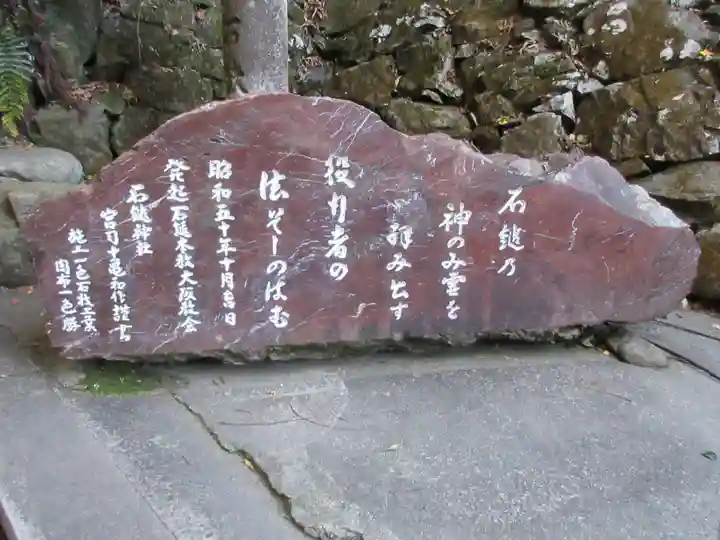 石鎚乃
神のみ雲を
拝み出す
役行者の
法そしのばむ
昭和五十年十月吉日
発起石鎚本教大阪教会
石鎚神社
宮司十亀和作謹書
施工一色石材工業
周布一色勝